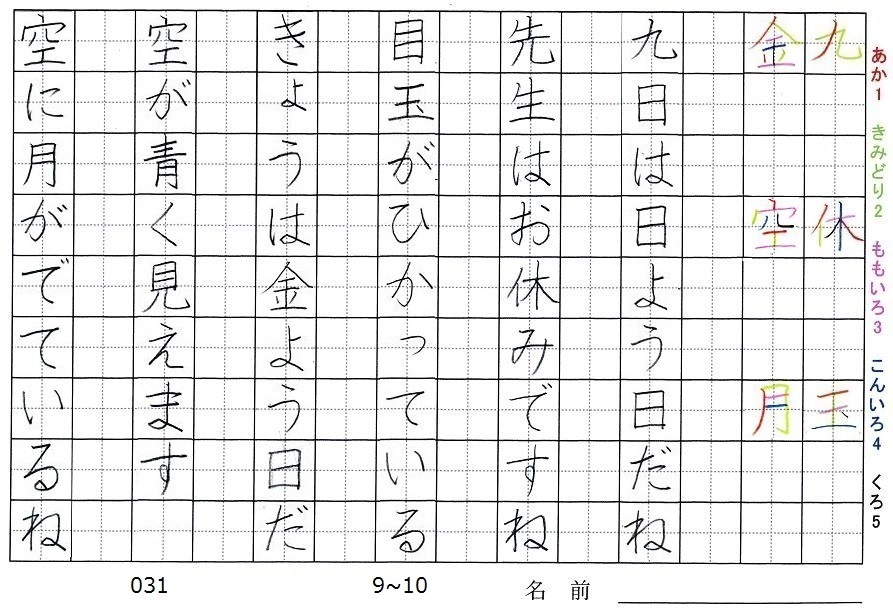 あか1 きみどり2 ももいろ3 こんいろ4 くろ5
九 休 玉
金 空 月
九日は日よう日だね
先生はお休みですね
目玉がひかっている
きょうは金よう日だ
空が青く見えます
空に月がでているね
031 9~10 名前